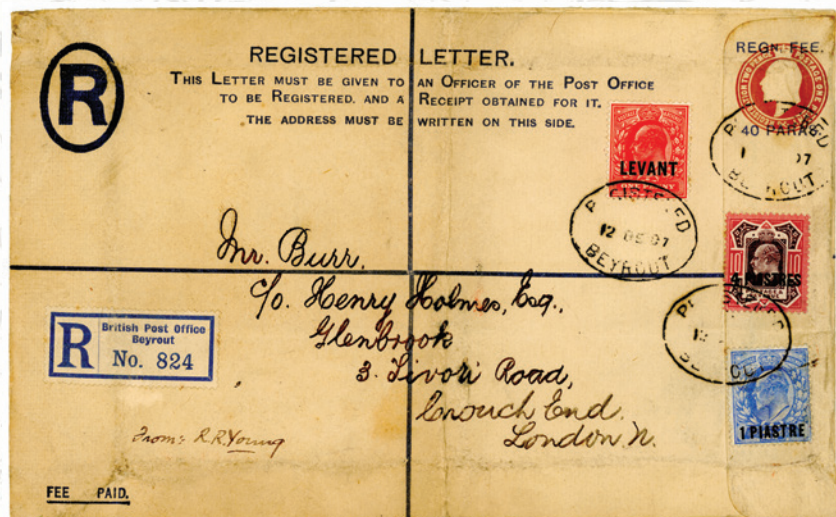 R
REGISTERED LETTER.
THIS LETTER MUST BE GIVEN TO AN OFFICER OF THE POST OFFICE
TO BE REGISTERED, AND A RECEIPT OBTAINED FOR IT.
THE ADDRESS MUST BE WRITTEN ON THIS SIDE.
REGN. FEE.
40 PARAS
LEVANT
REGISTERED
12 DE 07
BEYROUT
4 PIASTRES
10 10
1 PIASTRE
Mr. Burr.
c/o. Henry Holmes, Esq.,
Glenbrook
3. Tivoli Road,
Crouch End.
London. N.
R
British Post Office
Beyrout
No. 824
From: R.R. Young
FEE PAID.